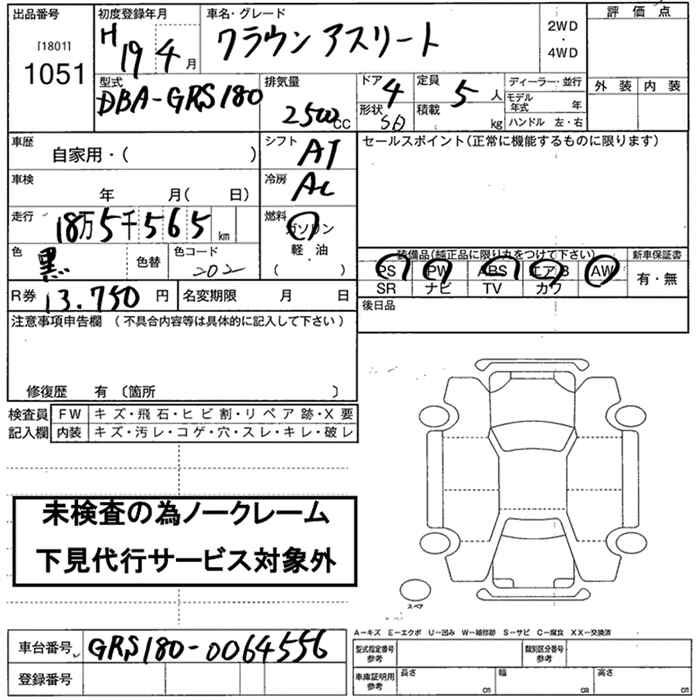 出品番号
[1801]
1051
初度登録年月
H 19 4 月
車名・グレード
クラウン アスリート
2WD
・
4WD
評 価 点
外 装 内 装
型式
DBA-GRS180
排気量
2500 CC
ドア 4
形状 SD
定員 5 人
積載 kg
ディーラー・並行
モデル年式 年
ハンドル 左・右
車歴
自家用・( )
シフト AT
セールスポイント(正常に機能するものに限ります)
車検
年 月( 日)
冷房 AC
走行 18万5千565 km
燃料
ガソリン
軽・油
( ・ )
色 黒
色替
色コード
202
装備品(純正品に限り丸をつけて下さい)
新車保証書
PS PW ABS エアB AW
SR ナビ TV カワ
有・無
R券 13.750 円
名変期限 月 日
後日品
注意事項申告欄 (不具合内容等は具体的に記入して下さい)
修復歴 有 〔箇所 〕
検査員記入欄
FW キズ・飛石・ヒビ割・リペア跡・X要
内装 キズ・汚レ・コゲ・穴・スレ・キレ・破レ
未検査の為ノークレーム
下見代行サービス対象外
スペア
A−キズ E−エクボ U−凹み W−補修跡 S−サビ C−腐食 XX−交換済
車台番号 GRS180-0064556
登録番号
型式指定番号
参考
類別区分番号
参考
車庫証明用
参考
長さ cm
幅 cm
高さ cm